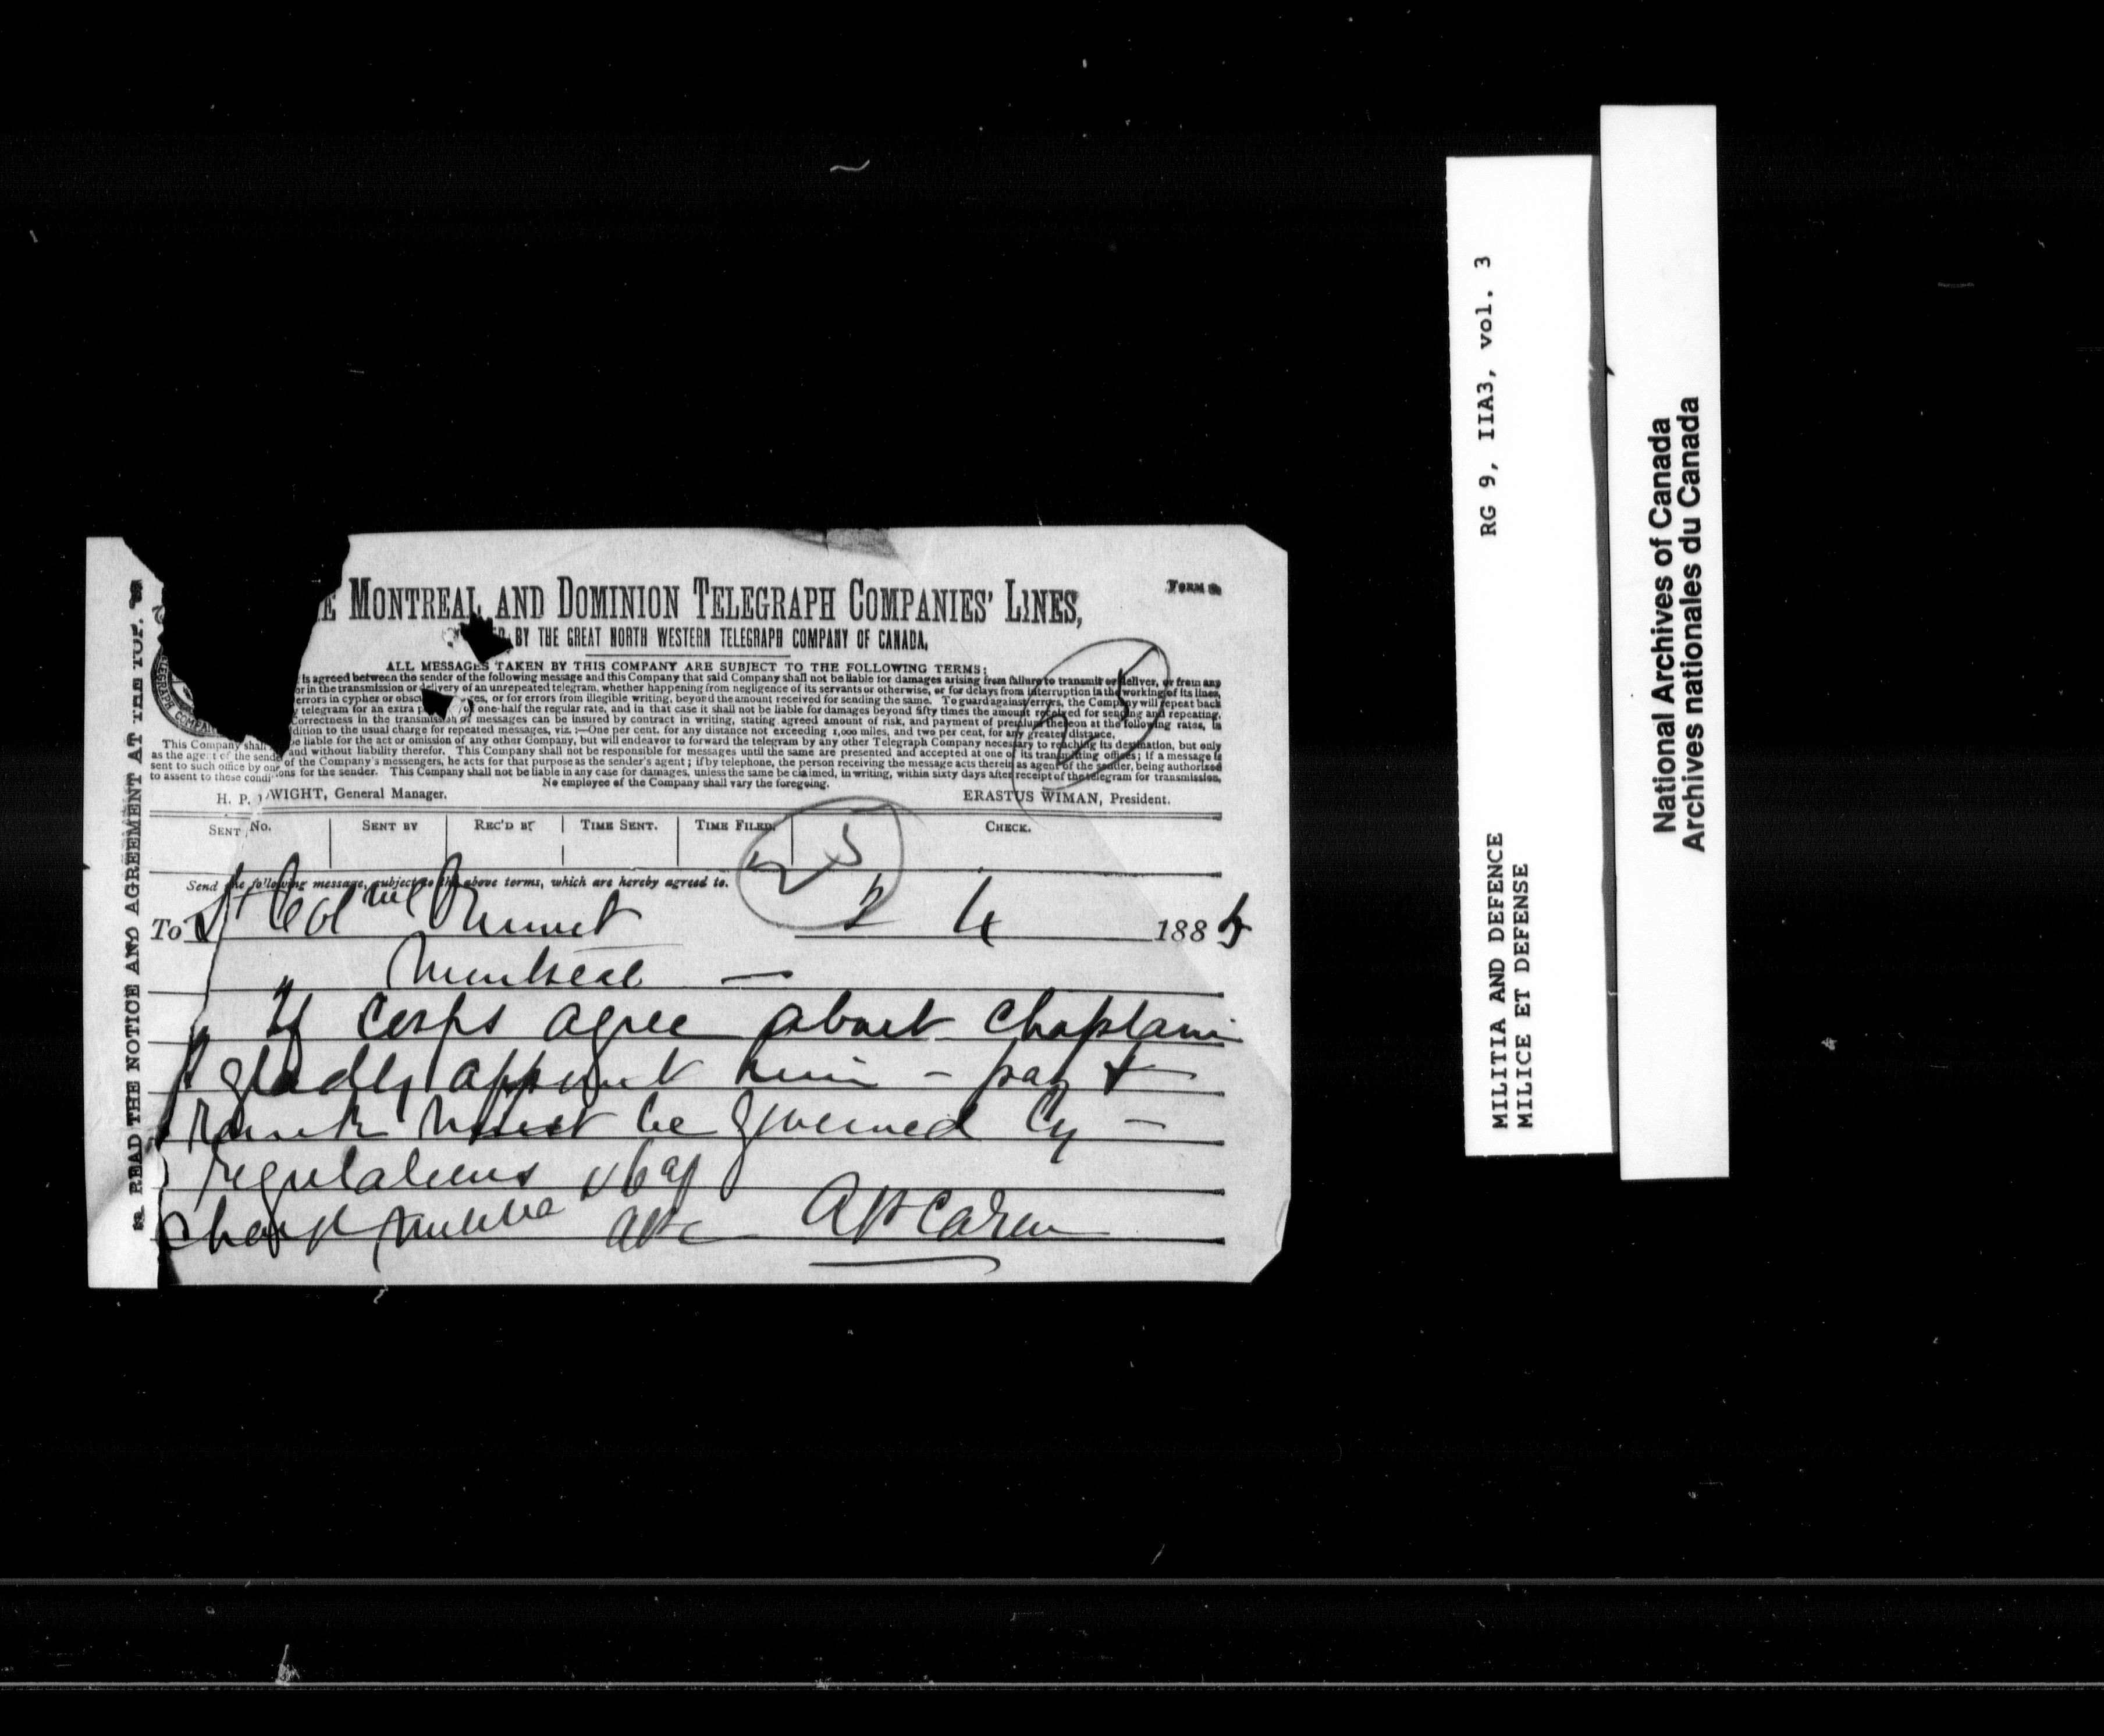 FORM
E MONTREAL AND DOMINION TELEGRAPH COMPANIES' LINES,
BY THE GREAT NORTH WESTERN TELEGRAPH COMPANY OF CANADA,
ALL MESSAGES TAKEN BY THIS COMPANY ARE SUBJECT TO THE FOLLOWING TERMS:
is agreed between the sender of the following message and this Company that said Company shall not be liable for damages arising from failure to transmit or deliver, or from any
or in the transmission or delivery of an unrepeated telegram, whether happening from negligence of its servants or otherwise, or for delays from interruption in the working of its lines,
errors in cypher or obscu ges, or for errors from illegible writing, beyond the amount received for sending the same. To guard against errors, the Company will repeat back
telegram for an extra p of one-half the regular rate, and in that case it shall not be liable for damages beyond fifty times the amount received for sending and repeating.
Correctness in the transmission of messages can be insured by contract in writing, stating agreed amount of risk, and payment of premium thereon at the following rates, in
dition to the usual charge for repeated messages, viz.:—One per cent. for any distance not exceeding 1,000 miles, and two per cent. for any greater distance.
This Company shall be liable for the act or omission of any other Company, but will endeavor to forward the telegram by any other Telegraph Company necessary to reaching its destination, but only
as the agent of the sende and without liability therefor. This Company shall not be responsible for messages until the same are presented and accepted at one of its transmitting offices; if a message is
sent to such office by one of the Company's messengers, he acts for that purpose as the sender's agent; if by telephone, the person receiving the message acts therein as agent of the sender, being authorized
to assent to these conditions for the sender. This Company shall not be liable in any case for damages, unless the same be claimed, in writing, within sixty days after receipt of the telegram for transmission.
No employee of the Company shall vary the foregoing.
H. P. DWIGHT, General Manager. ERASTUS WIMAN, President.
SENT No. SENT BY REC'D BY TIME SENT. TIME FILED. CHECK.
25
25
Send the following message, subject to the above terms, which are hereby agreed to.
To Lt Col 2 4 1885
Montreal —
If corps agree about chaplain
gladly appoint him - pay &
rank must be governed by —
regulations
Charge APC APCaron
READ THE NOTICE AND AGREEMENT AT THE TOP.
MILITIA AND DEFENCE RG 9, IIA3, vol. 3
MILICE ET DEFENSE
National Archives of Canada
Archives nationales du Canada